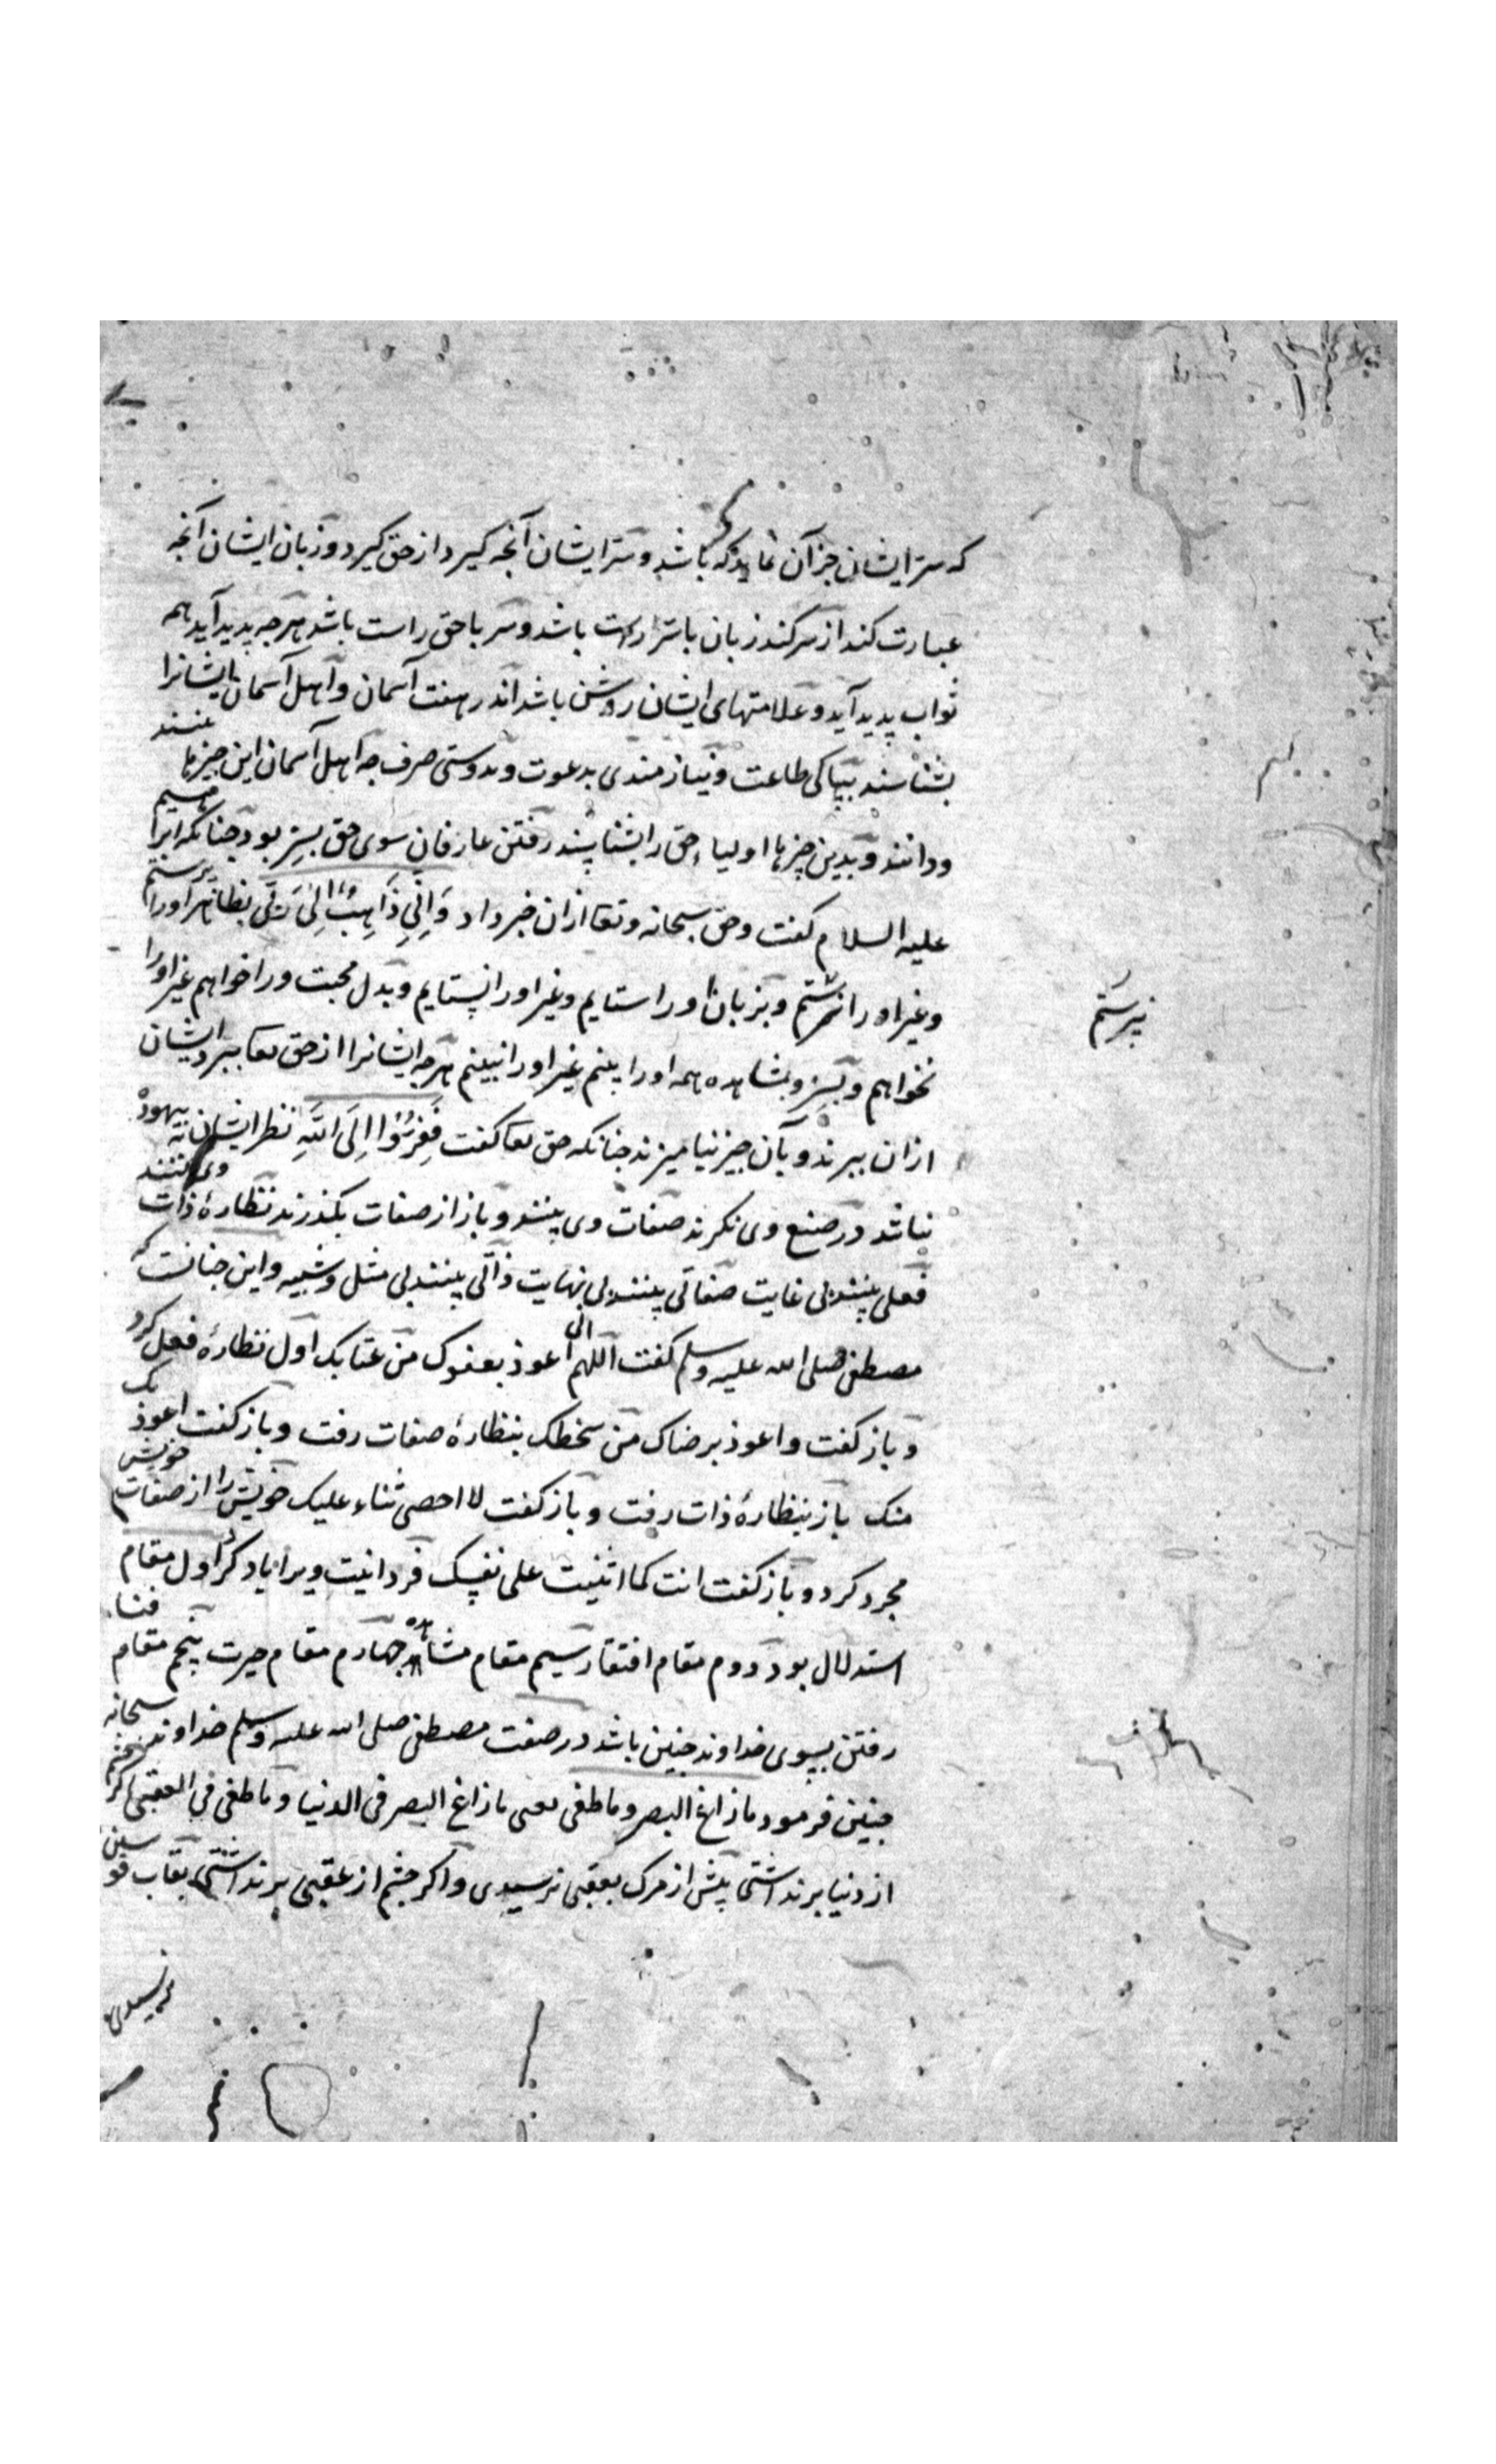 که سر ایشان جز آن نماید که باشد و سر ایشان آنچه گیرد از حق گیرد و زبان ایشان آنچه
عبارت کند از سر کند زبان با سر راست باشد و سر با حق راست باشد هرچه پدید آید همه
ثواب پدید آید و علامتهای ایشان روشن باشد اندر هفت آسمان و اهل آسمان ایشانرا
بشناسند بپاکی طاعت و نیازمندی بدعوت و بدوستی صرف چه اهل آسمان این چیزها بینند
و دانند و بدین چیزها اولیاء حق را بشناسند رفتن عارفان سوی حق بسر بود چنانکه ابراهیم
علیه السلام گفت و حق سبحانه و تعا ازان خبر داد وَ اِنِّی ذَاهِبٌ اِلیٰ رَبِّی بظاهر اورا پرستم
و غیر اورا نپرستم و بزبان اورا ستایم و غیر اورا نستایم و بدل محبت ورا خواهم غیر اورا
نپرستم
نخواهم و بسر و مشاهده همه اورا بینم غیر اورا نبینم هرچه ایشانرا از حق تعا ببرد ایشان
ازان ببرند و بآن چیز نیامیزند چنانکه حق تعا گفت فَفِرُّوْا اِلَی اللّٰهِ نظر ایشان به بیهوده
نباشد در صنع وی نگرند صفات وی بینند و باز از صفات بگذرند نظارهٔ ذات وی کنند
فعلی بینند بی غایت صفاتی بینند بی نهایت ذاتی بینند بی مثل و شبیه و این چنانست که
مصطفی صلی الله علیه وسلم گفت اللهم انی اعوذ بعفوک من عتابک اول نظارهٔ فعل کرد
و باز گفت و اعوذ برضاک من سخطک بنظارهٔ صفات رفت و باز گفت اعوذ بک
منک باز بنظارهٔ ذات رفت و باز گفت لا احصی ثناء علیک خویش را از صفات خویش
مجرد کرد و باز گفت انت کما اثنیت علی نفسک فردانیت ویرا یاد کرد اول مقام
استدلال بود دوم مقام افتقار سیم مقام مشاهده چهارم مقام حیرت پنجم مقام فنا
رفتن بسوی خداوند چنین باشد در صفت مصطفی صلی الله علیه وسلم خداوند سبحانه
چنین فرمود ما زاغ البصر و ما طغی یعنی ما زاغ البصر فی الدنیا و ما طغی فی العقبی اگر چشم
از دنیا برنداشتی پیش از مرگ بعقبی نرسیدی و اگر چشم از عقبی برنداشتی بقاب قوسین
نرسیدی